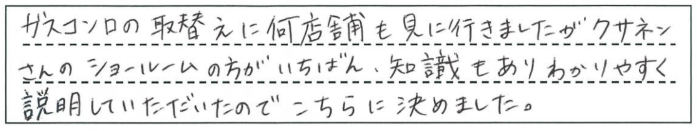 ガスコンロの取替えに何店舗も見に行きましたがクサネン
さんのショールームの方がいちばん、知識もありわかりやすく
説明していただいたのでこちらに決めました。